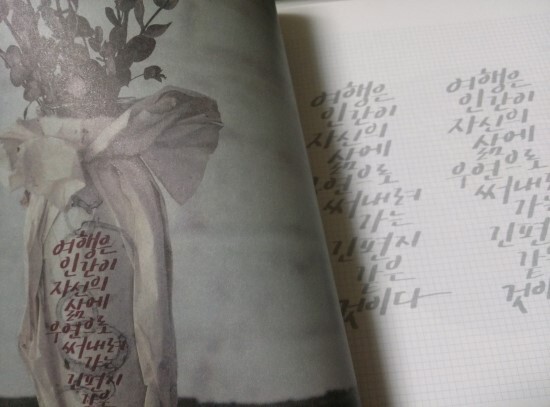 여행은
인간이
자신의
삶에
우연으로
써내려
가는
긴편지
같은
여행은
인간이
자신의
삶에
우연으로
써내려
가는
긴편지
같은
것이다
여행은
인간이
자신의
삶에
우연으로
써내려
가는
긴편
같
것이